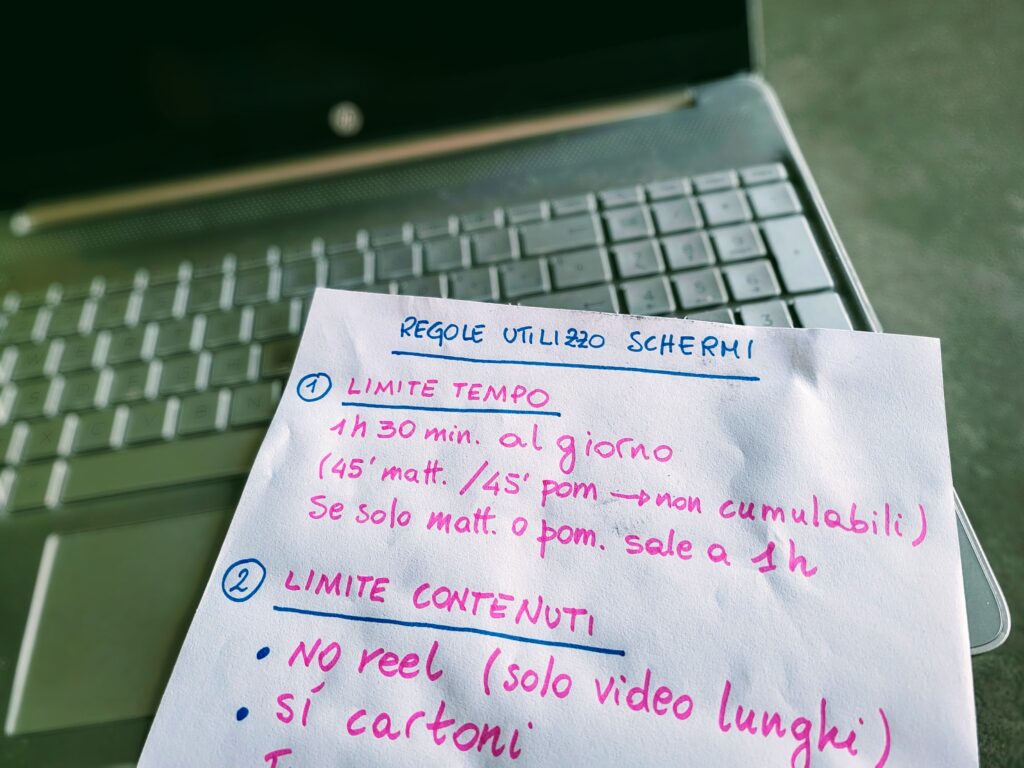 REGOLE UTILIZZO SCHERMI
1 LIMITE TEMPO
1h 30 min. al giorno
(45' matt. /45' pom → non cumulabili)
Se solo matt. o pom. sale a 1h
2 LIMITE CONTENUTI
• NO reel (solo video lunghi)
• sí cartoni